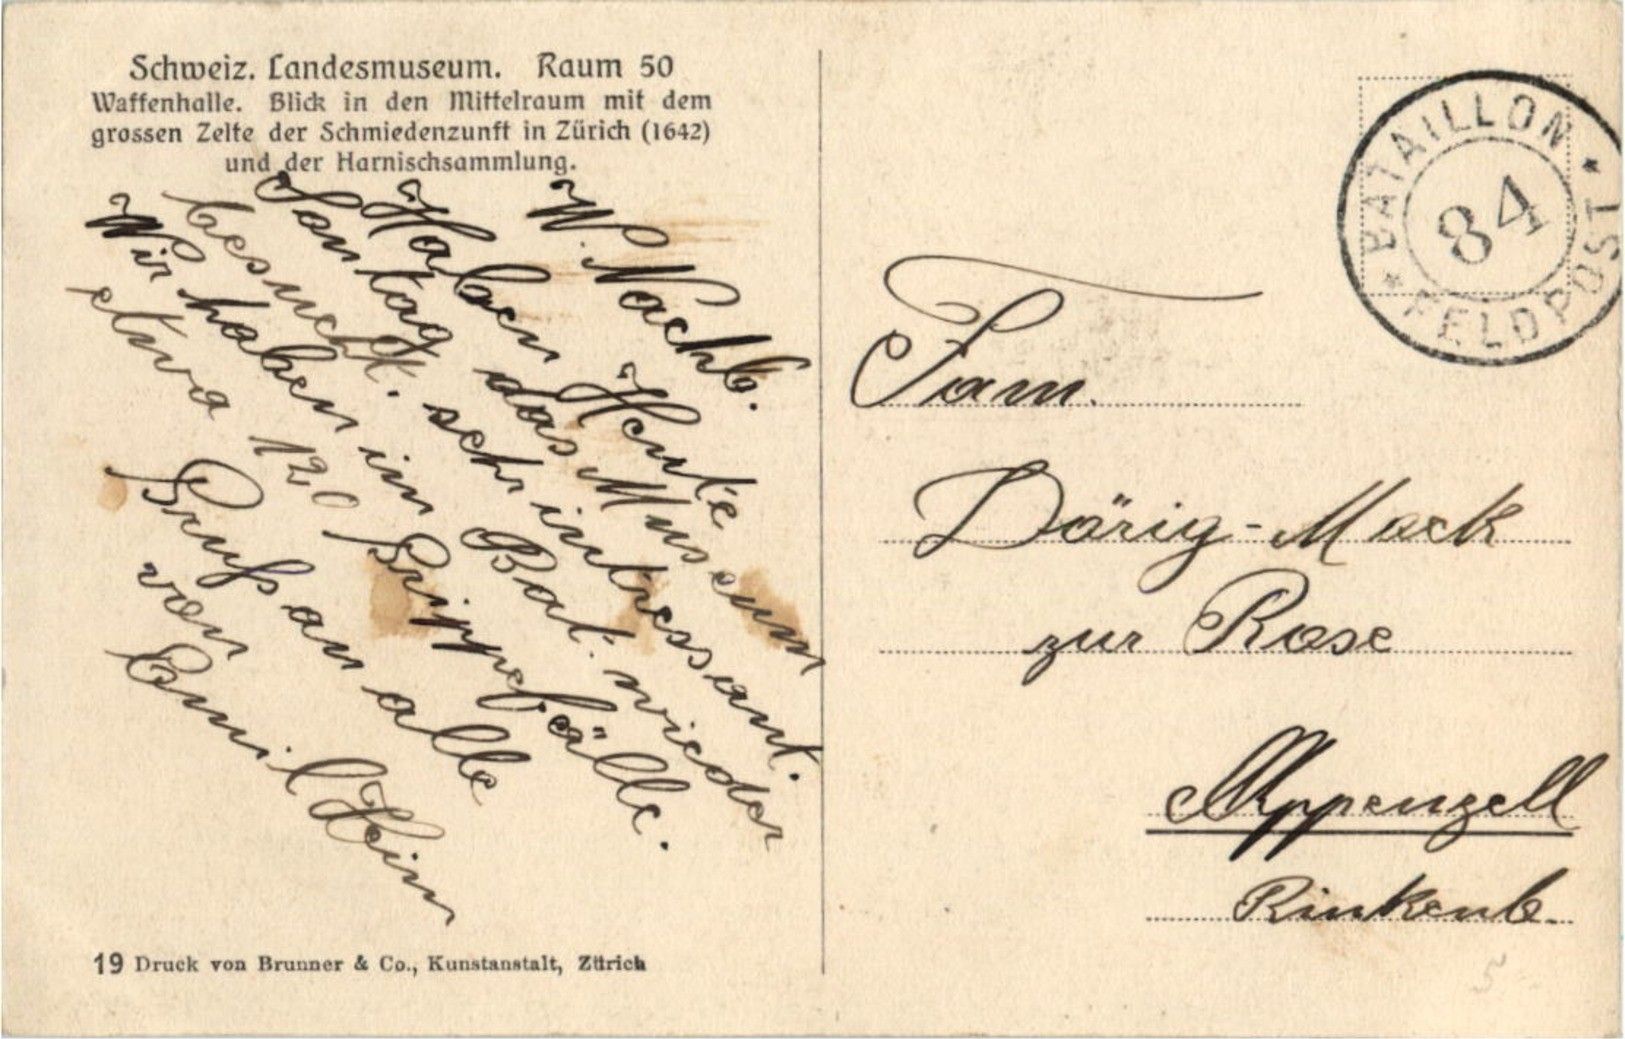 Schweiz. Landesmuseum. Raum 50
Waffenhalle. Blick in den Mittelraum mit dem
grossen Zelte der Schmiedenzunft in Zürich (1642)
und der Harnischsammlung.
W. Nachb.
Haben Heute
Sontag das Museum
besucht. sehr intressant.
Wir haben im Bat. wieder
etwa 120 Grippefälle.
Gruss an alle
von
Emil Heim
19 Druck von Brunner & Co., Kunstanstalt, Zürich
BATAILLON
84
FELDPOST
Fam.
Dörig-Mock
zur Rose
Appenzell
Rinkenb.
5